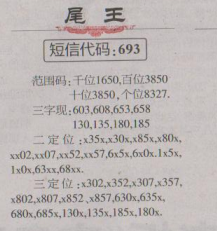 尾王
短信代码:693
范围码:千位1650,百位3850
十位3850,个位8327.
三字现:603,608,653,658
130,135,180,185
二定位:x35x,x30x,x85x,x80x,
xx02,xx07,xx52,xx57,6x5x,6x0x.1x5x,
1x0x,63xx,68xx.
三定位:x302,x352,x307,x357,
x802,x807,x852 ,x857,630x,635x,
680x,685x,130x,135x,185x,180x.